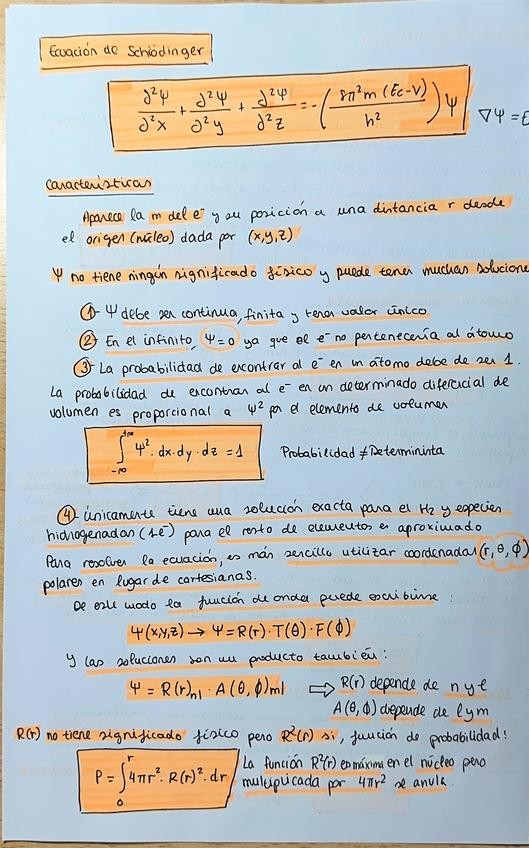 Ecuación de Schiödinger
∂²Ψ/∂²x + ∂²Ψ/∂²y + ∂²Ψ/∂²z = -(8π²m (Ec-V)/h²) Ψ
∇Ψ = E
Características
Aparece la m del e⁻ y su posición a una distancia r desde
el origen (núcleo) dada por (x,y,z)
Ψ no tiene ningún significado físico y puede tener muchas solucione
①- Ψ debe ser continua, finita y tener valor único
② En el infinito, Ψ=0 ya que el e⁻ no pertenecería al átomo
③- La probabilidad de encontrar al e⁻ en un átomo debe de ser 1.
La probabilidad de encontrar al e⁻ en un determinado diferencial de
volumen es proporcional a Ψ² por el elemento de volumen
∫₋∞⁺∞ Ψ². dx.dy.dz = 1 Probabilidad ≠ Determinista
④- únicamente tiene una solución exacta para el H₂ y especies
hidrogenadas (1e⁻) para el resto de elementos es aproximado
Para resolver la ecuación, es más sencillo utilizar coordenadas (r, θ, ϕ)
polares en lugar de cartesianas.
De este modo la función de ondas puede escribirse:
Ψ(x,y,z) → Ψ = R(r)·T(θ)·F(ϕ)
Y las soluciones son un producto también:
Ψ = R(r)nl · A(θ,ϕ)ml ⇒ R(r) depende de n y l
A(θ,ϕ) depende de l y m
R(r) no tiene significado físico pero R²(r) si, función de probabilidad:
P = ∫₀ʳ 4πr². R(r)². dr
La función R²(r) es máxima en el núcleo pero
multiplicada por 4πr² se anula.